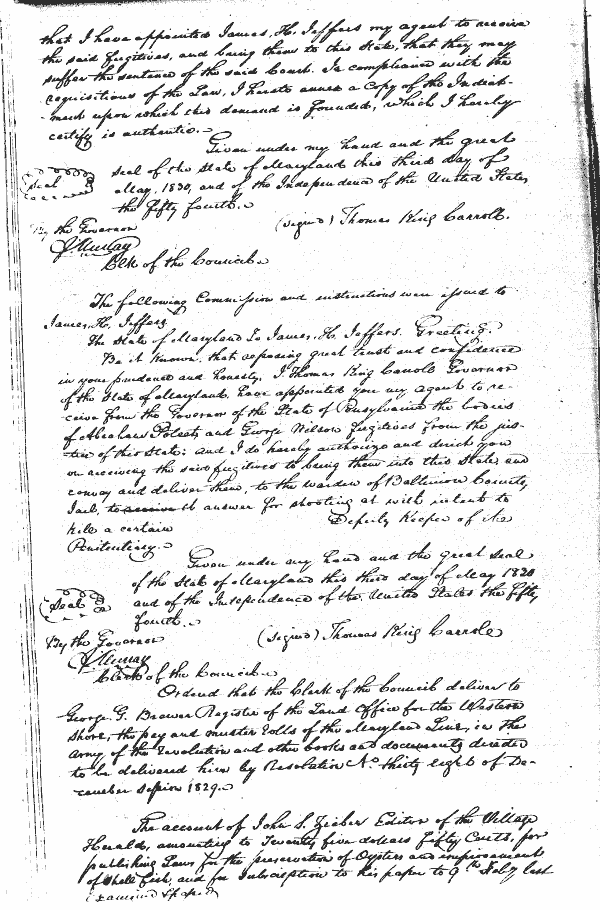 that I have appointed James, H. Jeffers my agent to receive
the said fugitives, and bring them to this State, that they may
suffer the sentence of the said Court. In compliance with the
requisitions of the Law, I hereto annex a Copy of the Indict-
ment upon which this demand is founded, which I hereby
certify is authentic.
Given under my hand and the great
Seal seal of the State of Maryland this third day of
May, 1830, and of the Independence of the United States
the fifty fourth.
By the Governor (signed) Thomas King Carroll.
J Murray
Clk of the Council.
The following Commission and instructions were issued to
James, H. Jeffers.
The State of Maryland To James, H. Jeffers. Greeting.
Be it known, that reposing great trust and confidence
in your prudence and honesty, I Thomas King Carroll Governor
of the State of Maryland. have appointed you my agent to re-
ceive from the Governor of the State of Pensylvania the bodies
of Abraham and George Wilson fugitives from the jus-
tice of this State; and I do hereby authorize and direct you
on receiving the said fugitives to bring them into this State, and
convey and deliver them, to the warden of Baltimore County,
Jail, to answer for shooting at with intent to
kill a certain Deputy Keeper of the
Penitentiary.
Given under my hand and the great seal
of the State of Maryland this third day of May 1830
Seal and of the Independence of the United States the fifty
fourth.
By the Governor (signed) Thomas King Carroll
J Murray
Clerk of the Council.
Ordered that the Clerk of the Council deliver to
George G. Brewer Register of the Land Office for the Western
shore, the pay and muster rolls of the Maryland Line, in the
Army of the Revolution and other books and documents directed
to be delivered him by Resolution No. thirty eight of De-
cember session 1829.
The account of John S. Zieber Editor of the Village
Herald, amounting to Twenty five dollars Fifty Cents, for
publishing Laws for the preservation of Oysters and improvement
of shell fish, and for subscription to his paper to 9th Feby last
Examined & passed